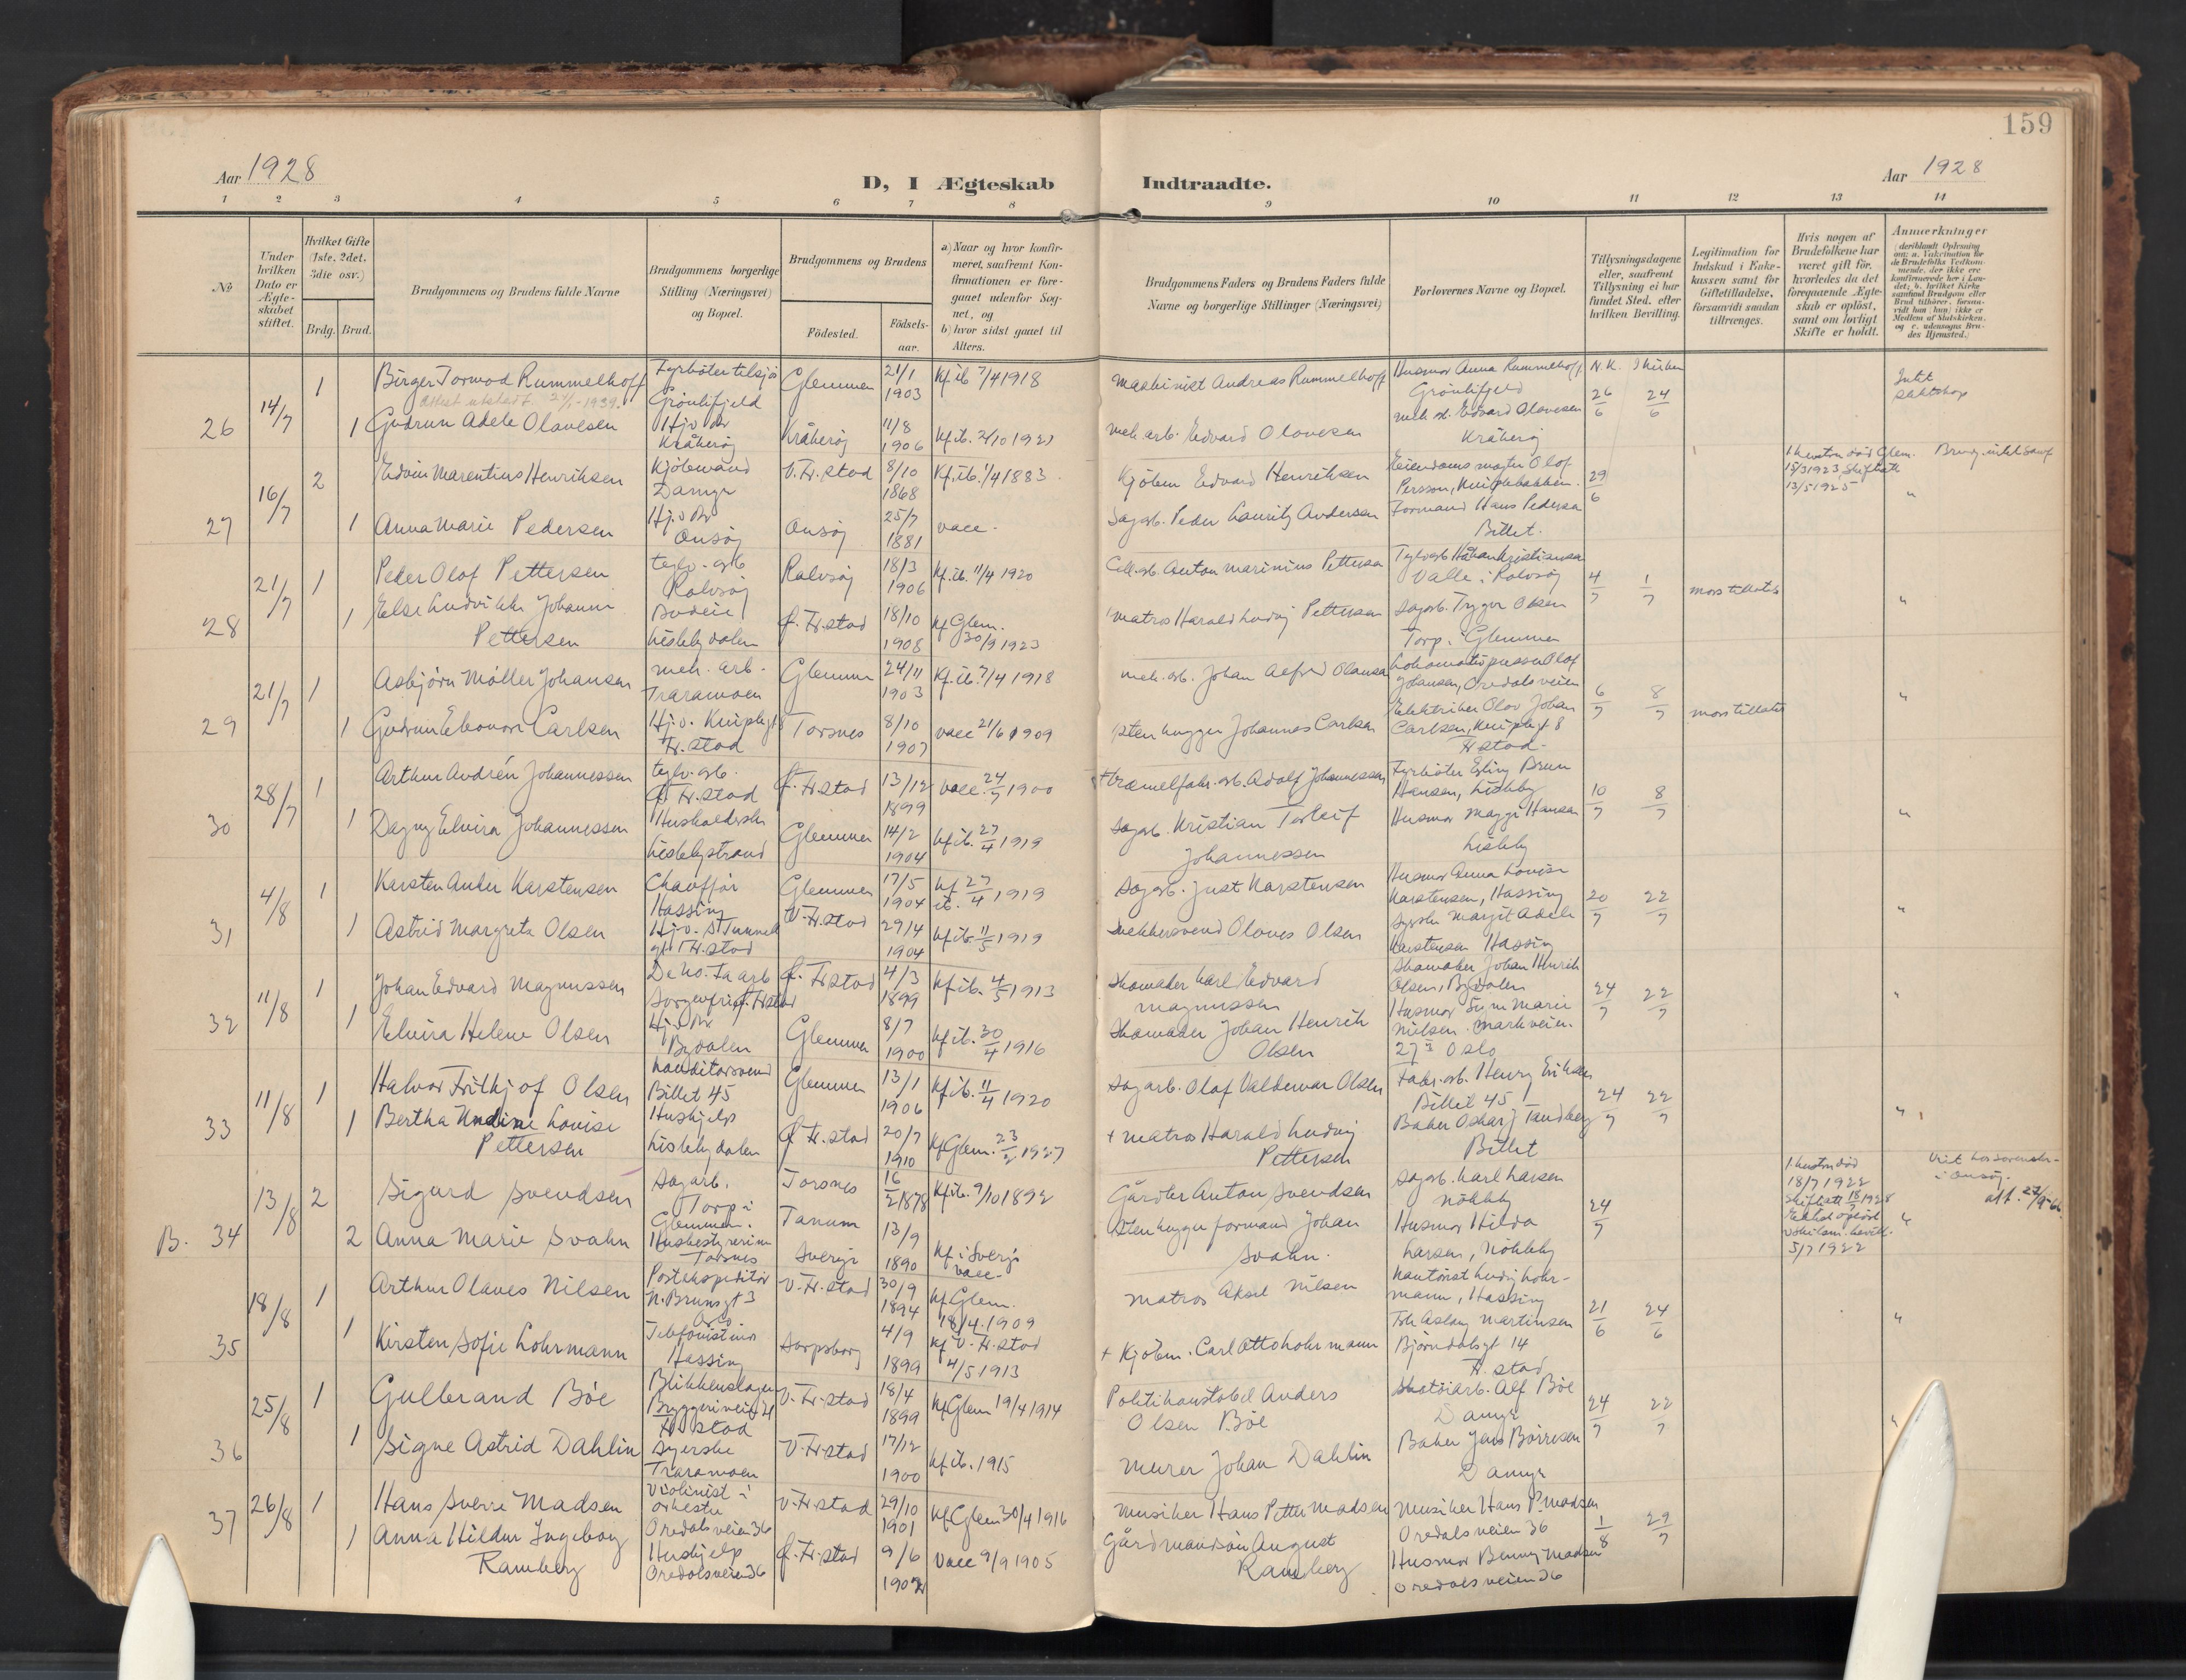 159
Aar 1928
D, I Ægteskab Indtraadte.
Aar 1928
1 2 3 4 5 6 7 8 9 10 11 12 13 14
№
Under hvilken Dato er Ægteskabet stiftet.
Hvilket Gifte (1ste, 2det, 3die osv.)
Brdg. Brud.
Brudgommens og Brudens fulde Navne
Brudgommens borgerlige Stilling (Næringsvei) og Bopæl.
Brudgommens og Brudens
Födested.
Födselsaar.
a) Naar og hvor konfirmeret, saafremt Konfirmationen er foregaaet udenfor Sognet, og
b) hvor sidst gaaet til Alters.
Brudgommens Faders og Brudens Faders fulde Navne og borgerlige Stillinger (Næringsvei)
Forlovernes Navne og Bopæl.
Tillysningsdagene eller, saafremt Tillysning ei har fundet Sted, efter hvilken Bevilling.
Legitimation for Indskud i Enkekassen samt for Giftetilladelse, forsaavidt saadan tiltrænges.
Hvis nogen af Brudefolkene har været gift før, hvorledes da det foregaaende Ægteskab er opløst, samt om lovligt Skifte er holdt.
Anmærkninger (deriblandt Oplysning om: a. Vakcination for de Brudefolks Vedkommende, der ikke ere konfirmerede her i Landet; b. hvilket Kirkesamfund Brudgom eller Brud tilhører, forsaavidt han (hun) ikke er Medlem af Statskirken, og c. udensogns Brudes Hjemsted.)
26 14/7 1 Birger Tormod Rummelhoff Fyrbøter tilsjøs Grønlifjeld Glemmen 21/1 1903 Kf. ib. 7/4 1918 Maskinist Andreas Rummelhoff Husmor Anna Rummelhoff Grønlifjeld N.K. 26/6 24/6 Intet slektskap
Attest utstedt 1939.
1 Gudrun Adele Olavesen Hj. v. br Kråkerøy Kråkerøy 11/8 1906 Kf. ib. 2/10 1921 Mek. arb. Edvard Olavesen mek. Edvard Olavesen Kråkerøy
27 16/7 2 Edvin Marentius Henriksen Kjøbmand Damyr V. Fr.stad 8/10 1868 Kf. ib. 1/4 1883 Kjøbm Edvard Henriksen Eiendomsmegler Olof Persson, Knipplebakken 29/6
1 hustru død Glem. 15/3 1923, Skifteatt 13/5 1925
1 Anna Marie Pedersen Hj. v. br Onsøy Onsøy 25/7 1881 vacc. Sagarb. Peder Lauritz Andersen Formand Hans Pedersen Billet. "
28 21/7 1 Peder Olof Pettersen teglv. arb Rolvsøy Rolvsøy 18/3 1906 Kf. ib. 11/4 1920 Cell. arb. Anton Marinius Pettersen Teglv. arb Håkon Kristiansen Valle i Rolvsøy 4/7 1/7 mors tillatelse
1 Else Ludvikke Johanne Pettersen Budeie Lisleby dalen G. Fr.stad 18/10 1908 Kf Glem. 30/9 1923 Matros Harald Ludvig Pettersen Sagarb. Trygve Olsen Torp i Glemmen "
29 21/7 1 Asbjørn Møller Johansen mek. arb. Traramoen Glemmen 24/11 1903 Kf. ib. 7/4 1918 mek. arb. Johan Alfred Olausen Lokomotivpusser Olof Johansen, Oredalsveien 6/7 8/7 mors tillatelse
1 Gudrun Eleonora Carlsen Hj. v. Kniplegt 8 Fr. stad Torsnes 8/10 1907 vacc 21/6 1909 stenhugger Johannes Carlsen Elektriker Olav Johan Carlsen, Kniplegt 8 Fr stad. "
30 28/7 1 Arthur André Johannessen teglv. arb. G. Fr. stad G. Fr. stad 13/12 1899 vacc. 24/7 1900 + træmelfabr. arb. Adolf Johannessen Fyrbøter Erling Brun Hansen, Lisleby 10/7 8/7
1 Dagny Elvira Johannessen Husholderske Lislebystrand Glemmen 14/2 1904 Kf. ib. 27/4 1919 Sagarb. Kristian Torleif Johannessen Husmor Maggi Hansen Lisleby "
31 4/8 1 Karsten Anker Karstensen Chauffør Hassing Glemmen 17/5 1904 Kf. ib. 27/4 1919 Sagarb. Just Karstensen Husmor Anna Lovise Karstensen, Hassing 20/7 22/7
1 Astrid Margrete Olsen Hj. v. St Tunnel gt Fr. stad V. Fr. stad 29/4 1904 Kf. ib. 11/5 1919 Snekkersvend Olaves Olsen Syerske Margit Adele Karstensen Hassing "
32 11/8 1 Johan Edvard Magnussen DeNo.Fa arb Sorgenfri G. Fr.stad G. Fr.stad 4/3 1899 Kf. ib. 4/5 1913 Skomaker Karl Edvard Magnussen Skomaker Johan Henrik Olsen, Bydalen 24/7 22/7
1 Elvira Helene Olsen Hj. v. br Bydalen Glemmen 8/7 1900 Kf. ib. 30/4 1916 Skomaker Johan Henrik Olsen Husmor Marie Nielsen. Markveien 27 3 Oslo "
33 11/8 1 Halvor Frithjof Olsen Konditorsvend Billet 45 Glemmen 13/1 1906 Kf. ib. 11/4 1920 Sagarb. Olaf Valdemar Olsen Fabr. arb. Henry Eriksen Billet 45 24/7 22/7
1 Bertha Undine Lovise Pettersen Hushjelp Lisleby dalen G. Fr. stad 20/7 1910 Kf Glem. 23/2 1927 + matros Harald Ludvig Pettersen Baker Oskar J Tandberg Billet "
B. 34 13/8 2 Sigurd Svendsen Sagarb. Torp i Glemmen. Torsnes 16/2 1878 Kf. ib. 9/10 1892 Gårdbr Anton Svendsen Sagarb. Karl Larsen Nøkleby 24/7 1 hustru død 18/7 1922 Skifteatt 18/7 1928
2 Anna Marie Svahn Husbestyrerinne Torsnes Tanum Sverige 13/9 1890 Kf. i Sverige vacc. Stenhugger formand Johan Svahn. Husmor Hilda Larsen, Nøkleby Ekteskap opløst v. skilsm. bevill. 5/7 1922 "
35 18/8 1 Arthur Olaves Nilsen Postekspeditør N. Brunsgt 3 Oslo V. Fr. stad 30/9 1894 Kf Glem. 18/4 1909 Matros Aksel Nilsen Kontorist Ludvig Lohrmann, Hassing 21/6 24/6
1 Kirsten Sofie Lohrmann Telefonistinne Hassing Sarpsborg 4/9 1899 Kf V. Fr. stad 4/5 1913 + Kjøbm. Carl Otto Lohrmann Frk Aslaug Martinsen Bjørndalsgt 14 Fr. stad "
36 25/8 1 Gulbrand Bøe Blikkenslager Bryggeriveien 21 Fr. stad V. Fr. stad 18/4 1899 Kf Glem 19/4 1914 Politikonstabel Anders Olsen Bøe Skotøiarb. Alf Bøe Damyr 24/7 22/7
1 Signe Astrid Dahlin Syerske Traramoen V. Fr. stad 17/12 1900 Kf. ib. 1915 Murer Johan Dahlin Baker Jens Børresen Damyr
37 26/8 1 Hans Sverre Madsen Violinist i orkester Oredalsveien 36 V. Fr. stad 29/10 1901 Kf Glem 30/4 1916 Musiker Hans Petter Madsen Musiker Hans P Madsen Oredalsveien 36 1/8 29/7
1 Anna Hildur Ingeborg Ramberg Hushjelp Oredalsveien 36 G. Fr. stad 9/6 1904 vacc 9/9 1905 Gårdmandsøn August Ramberg Husmor Benny Madsen Oredalsveien 36